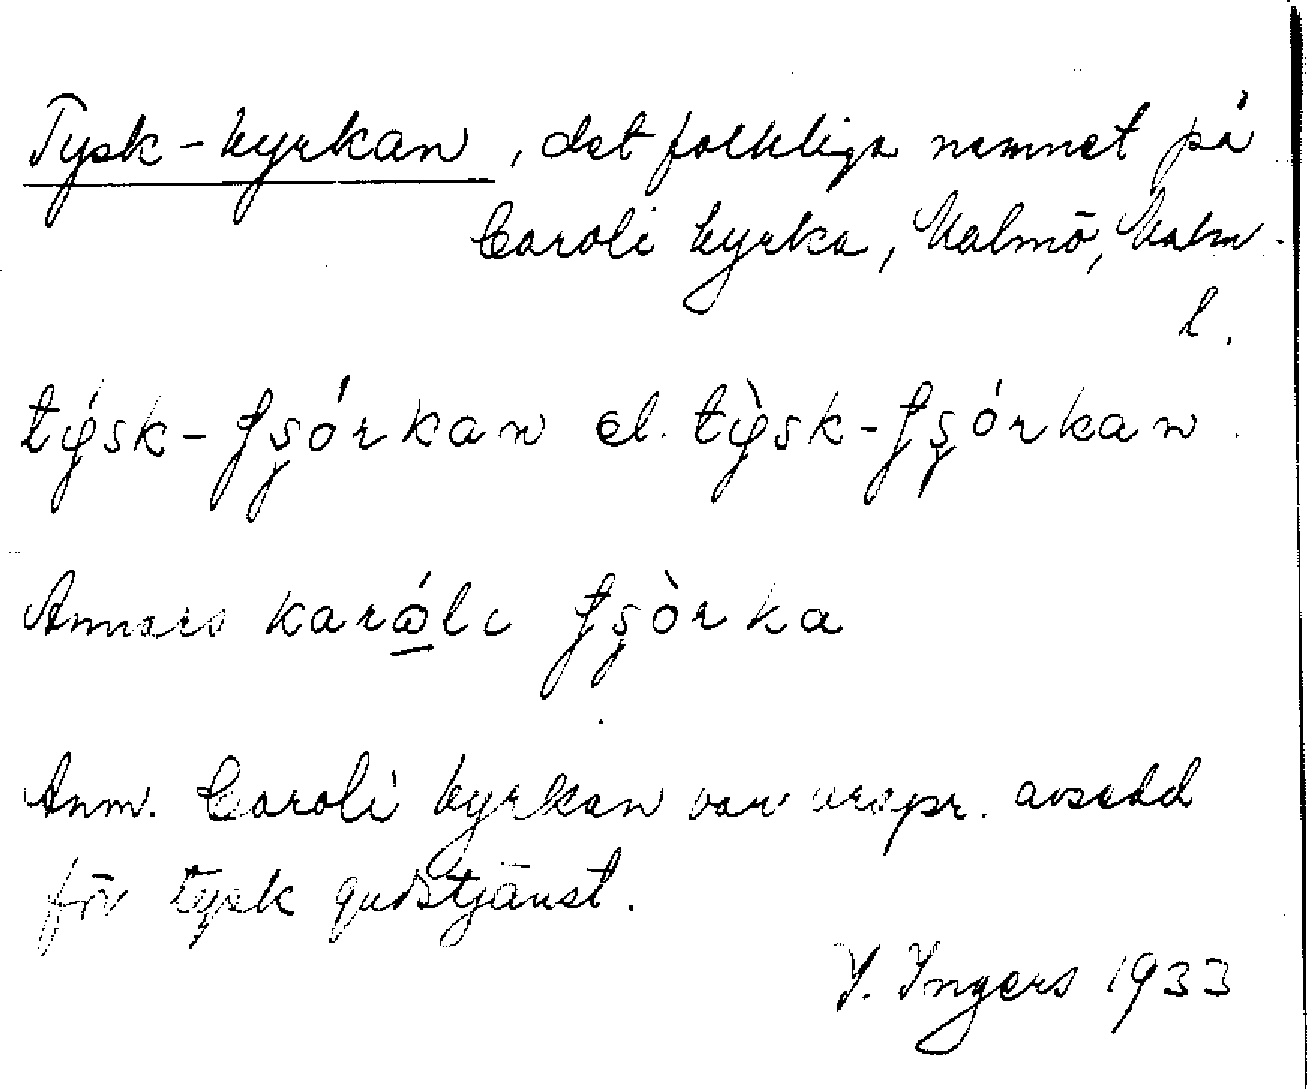 Tysk-kyrkan, det folkliga namnet på
Caroli kyrka, Malmö, Malm.
l.
týsk-ʈʂórkan el. tỳsk-ʈʂórkan.
Annars karώ̱lı ʈʂòrka
Anm. Caroli kyrkan var urspr. avsedd
för tysk gudstjänst.
I. Ingers 1933